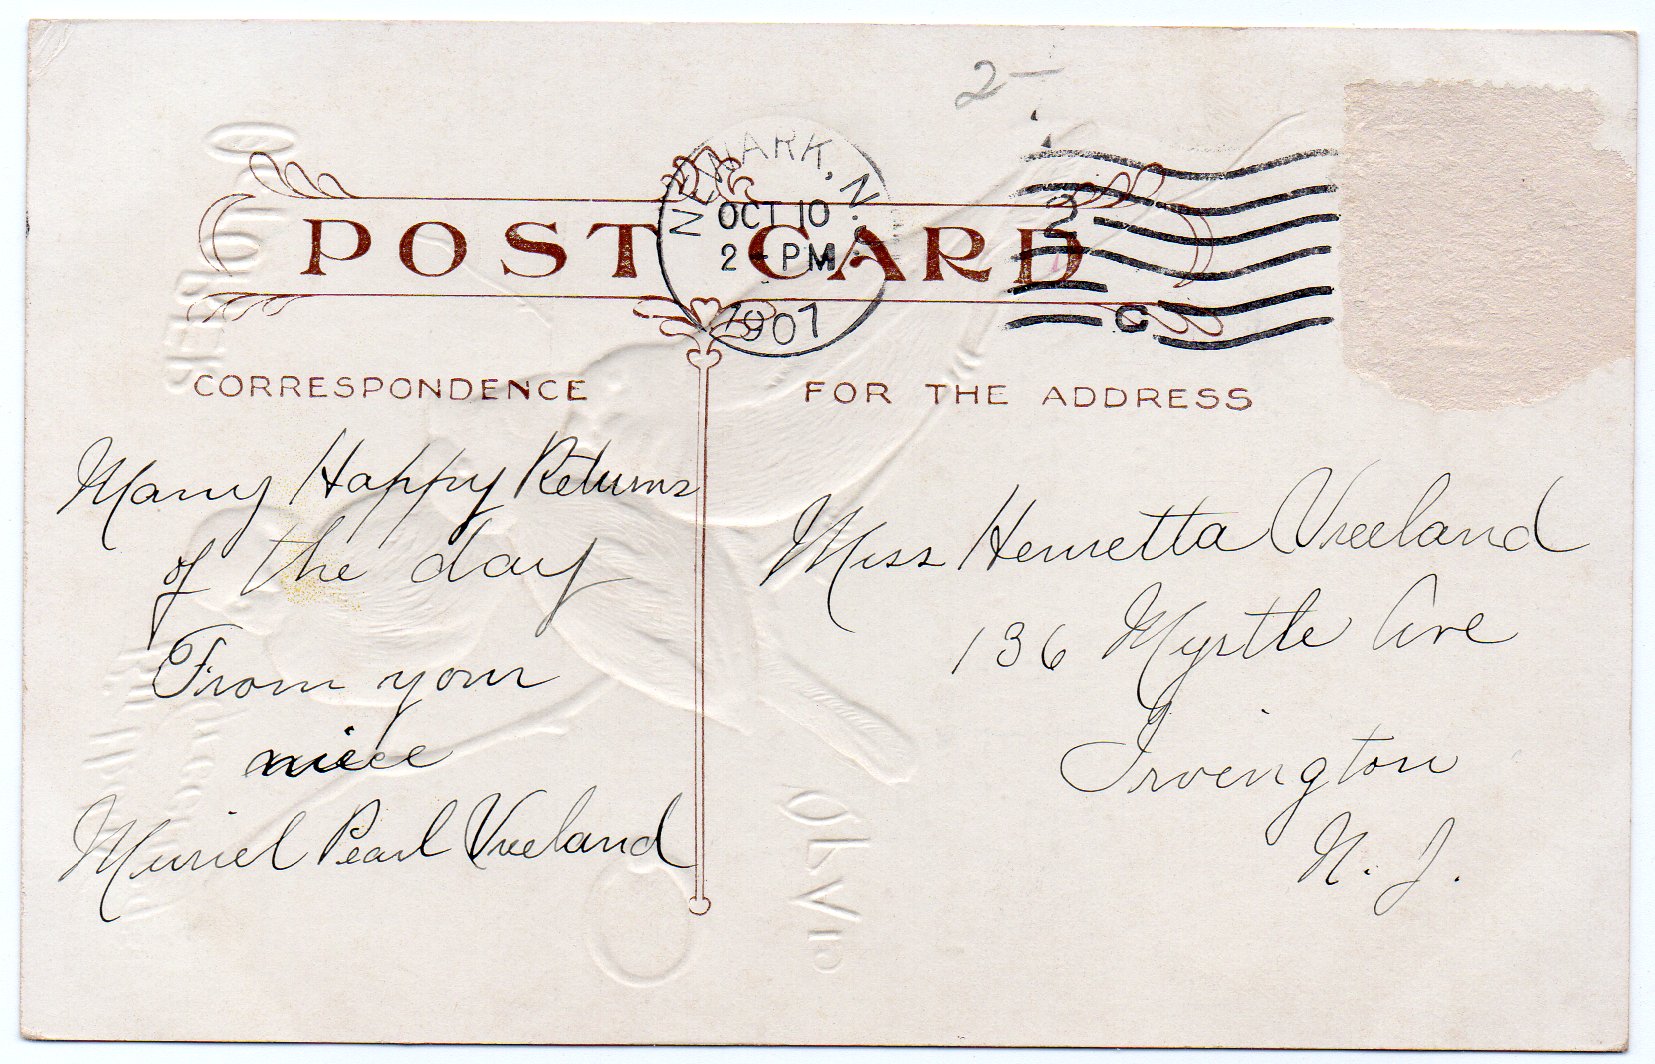 2-
NEWARK, N.J.
OCT 10
2-PM
1907
C
POST CARD
CORRESPONDENCE
FOR THE ADDRESS
Many Happy Returns
of the day
From your
niece
Muriel Pearl Vreeland
Miss Henrietta Vreeland
136 Myrtle Ave
Irvington
N. J.